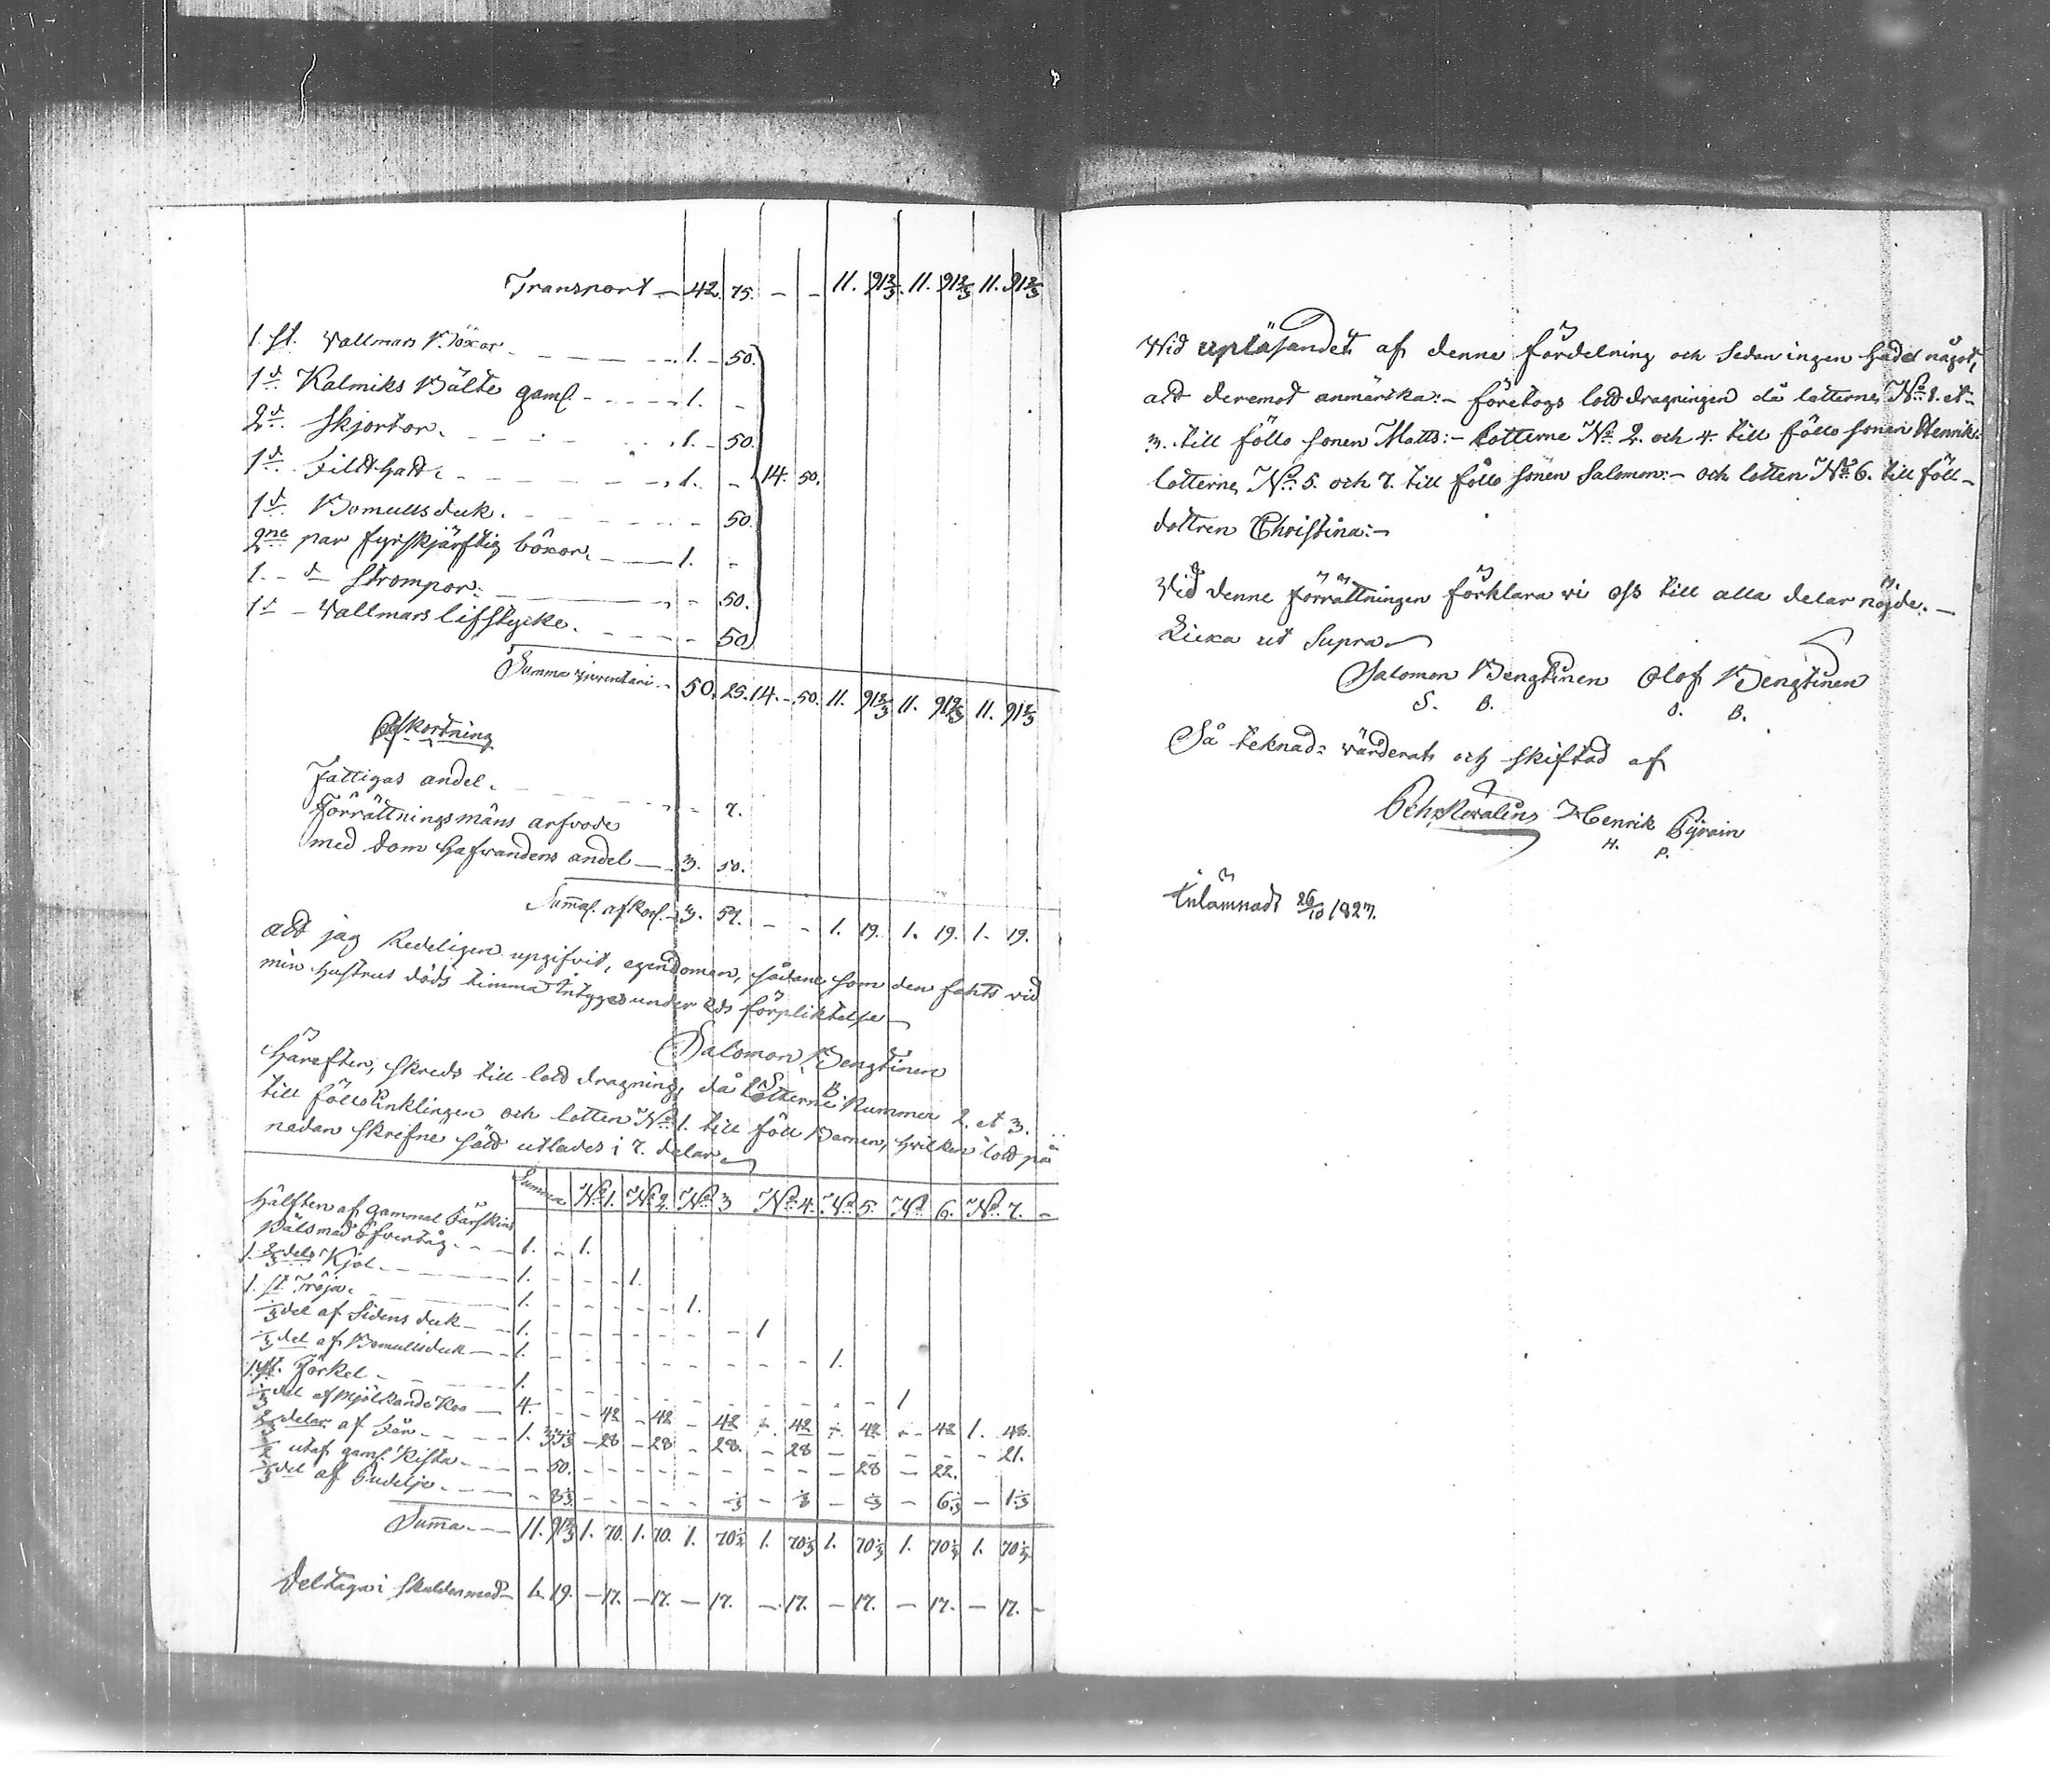 Transport — 42. 75. – – 11. 91 2/3. 11. 91 2/3 11. 91 2/3
1. st. Wallmars Böxor. – – – 1. – 50.
1 d:o Kalmiks Bälte gaml – – – 1. –
2 d:o Skjortor. – – – 1. – 50.
1 d:o Filt hatt. – – – 1. – 14. 50.
1 d:o Bomullsduk. – – – 50.
2ne par fyrskjäftig böxor. – – 1. –
1. – d:o Strompor. – – – 50.
1 d:o – Wallmars lifstycke. – – – 50.
Summa inventari – 50. 25. 14. – 50. 11. 91 2/3 11. 91 2/3 11. 91 2/3
Afkortning
Fattigas andel. – – – 7.
Förrättningsmäns arfvode
med dom hafvandens andel — 3. 50.
Summa afkort. – 3. 57. – – 1. 19. 1. 19. 1. 19.
att jag Redeligen upgifvit, egendomen, sådane som den fants vid
min hustrus döds timma Intygas under Eds förpliktelse
Salomon Bengtinen
S. B.
Härefter, skreds till lottdragning, då Lotterne Nummer 2. et 3.
till föllo Enklingen och lotten No 1. till föll Barnen, hvilken lott på
nedan skrefne sätt utlades i 7. delar
Summa No 1. No 2. No 3 No 4. No 5. No 6. No 7. –
Hälften af gammal Fårskins
Päls med Öfvertåg. – – 1. – 1.
1. 2/3 dels Kjol. – – – 1. – – – 1.
1. st. Tröja. – – – 1. – – – – – 1.
1/3 del af Sidens duk – – 1. – – – – – – – 1
1/3 del af Bomullsduk – – 1. – – – – – – – – 1.
1. st. Förkel – – – 1. – – – – – – – – – 1
1/3 del af Mjölkande Koo — 4. – – 42 – 42 – 42 – 42 – 42 – 42 1. 48.
2/3 delar af Får. – – – 1. 33 1/3 – 28 – 28 – 28. – 28 – – – – – 21.
1/2 utaf gaml. Kista. – – – 50. – – – – – – – – – 28 – 22.
1/3 del af Budelje. – – – 8 1/3 – – – – – 1/3 – 1/3 – 1/3 – 6 1/3 – 1 1/3
Summa. – – 11. 91 2/3 1. 70. 1. 70. 1. 70 1/3 1. 70 1/3 1. 70 1/3 1. 70 1/3 1. 70 1/3
Deltager i skulden med – 1. 19. – 17. – 17. – 17. – 17. – 17. – 17. – 17. –
Wid upläsandet af denne fördelning och sedan ingen hade något,
att deremot anmärka:– företogs lottdragningen då lotterne, No 1. et –
3. till föllo sonen Matts:– Lotterne No 2. och 4. till föllo sonen Henrik:
lotterne, No 5. och 7. till föllo sonen Salomon:– och lotten No 6. till föll –
dottren Christina:–
Vid denne förrättningen förklara vi oss till alla delar nöjde. –
Licka ut Supra
Salomon Bengtinen Olof Bengtinen
S. B. O. B.
Så teknad: värderat och skiftad af
Henrik
H. P.
Inlämnadt 26/10 1827.